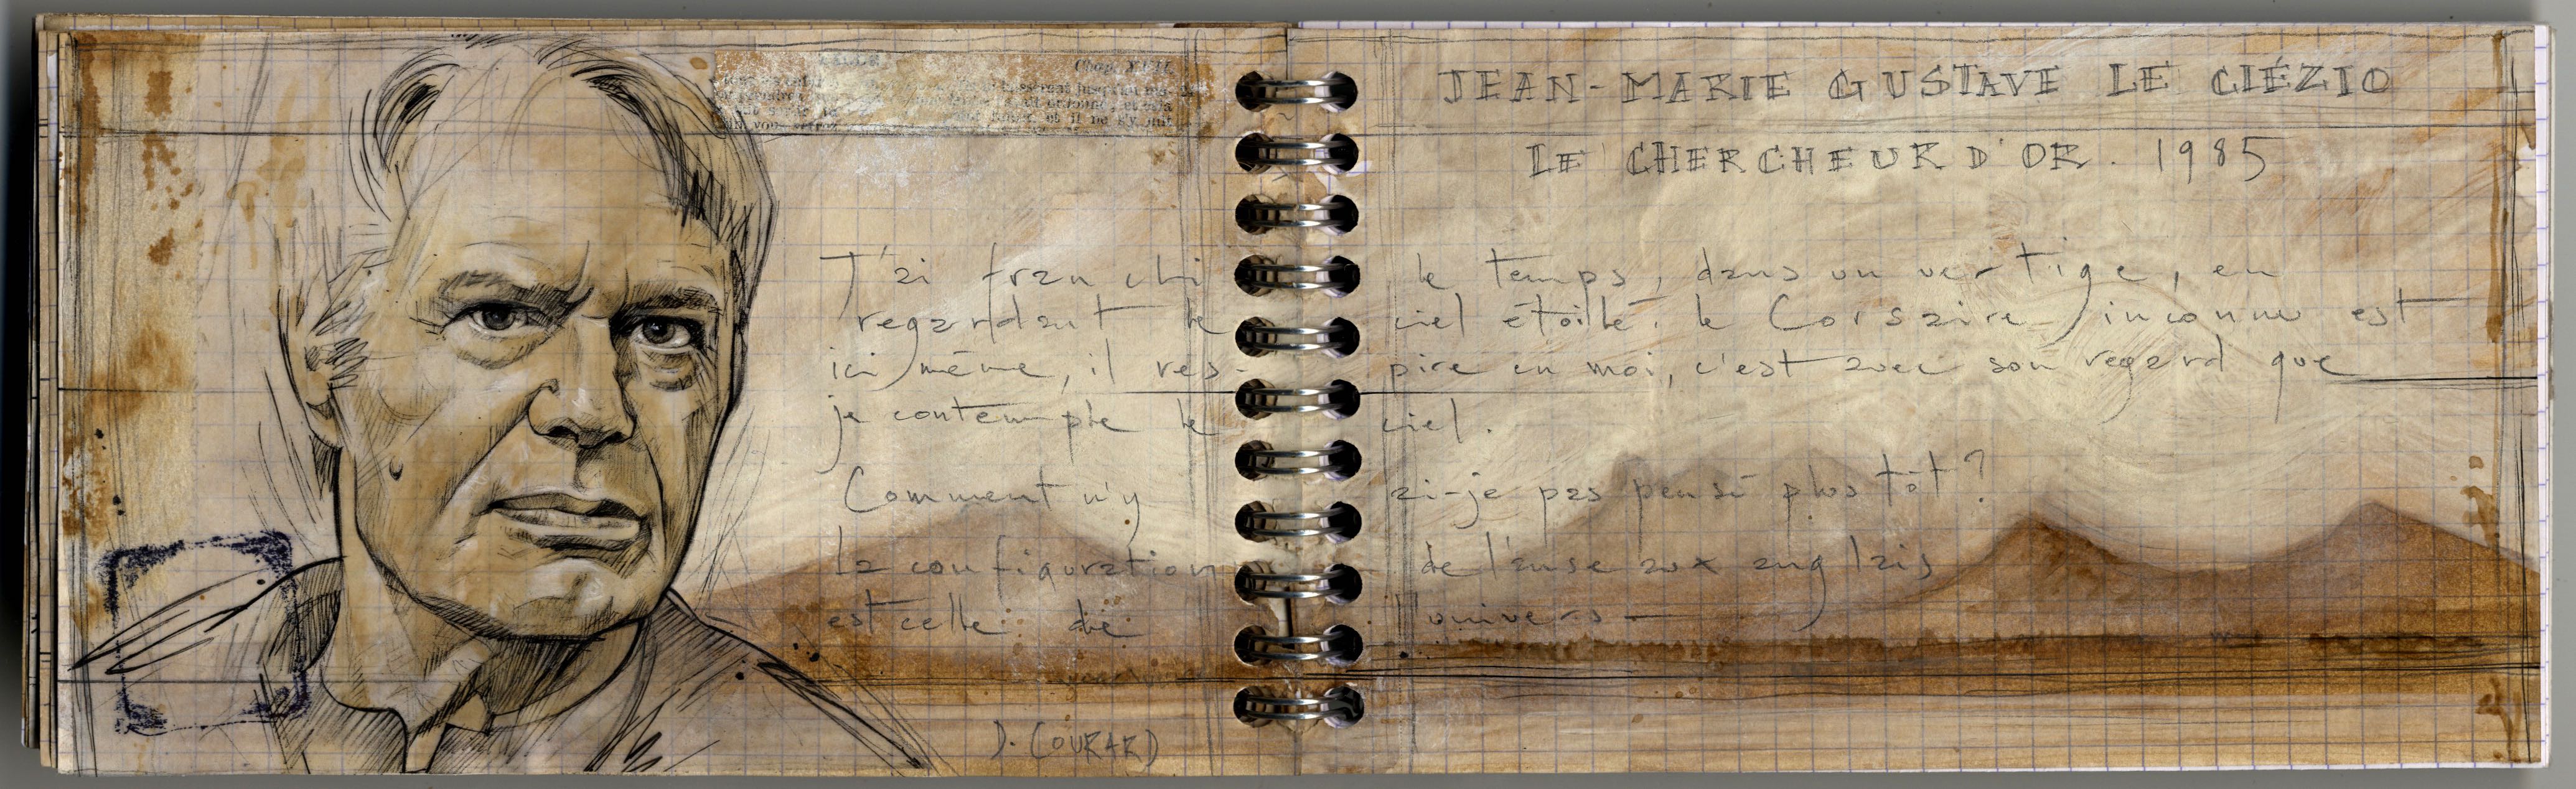 JEAN-MARIE GUSTAVE LE CLÉZIO
LE CHERCHEUR D'OR. 1985
J'ai franchi le temps, dans un vertige, en
regardant le ciel étoilé. le Corsaire inconnu est
ici même, il res-pire en moi, c'est avec son regard que
je contemple le ciel.
Comment n'y ai-je pas pensé plus tôt?
la configuration de l'anse aux anglais
est celle de l'univers
D. COURARD